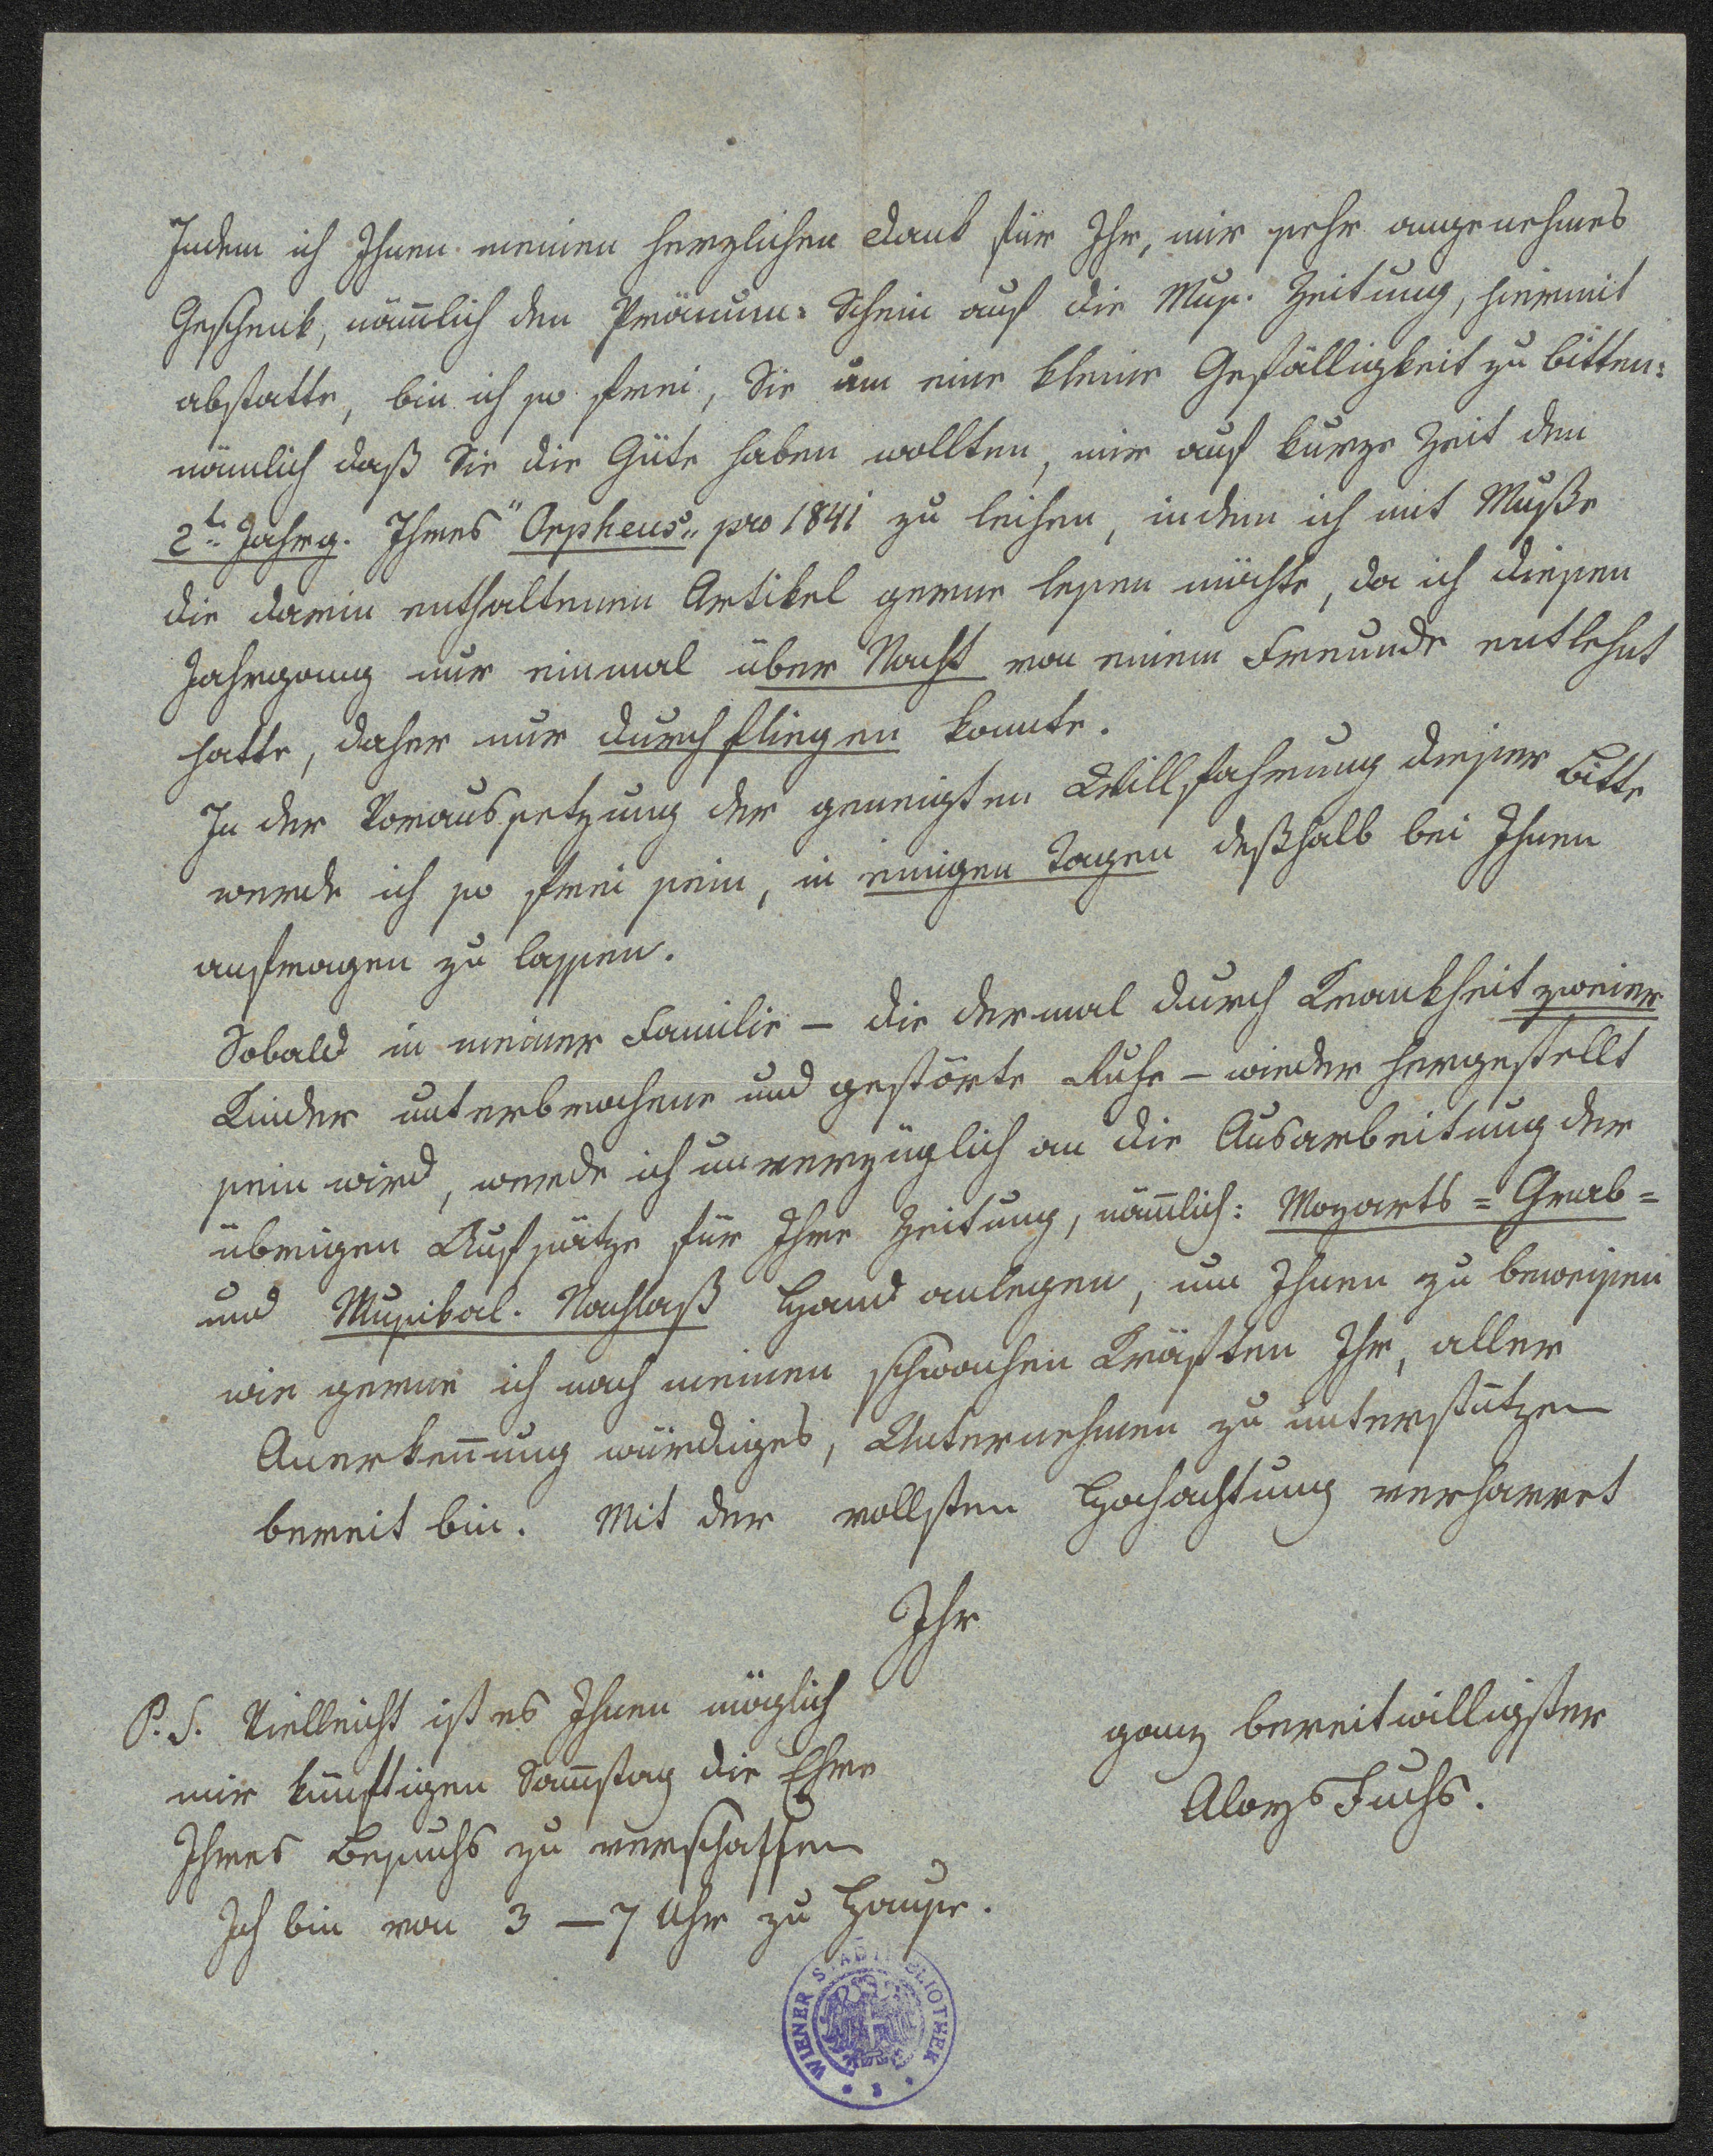 Indem ich Ihnen meinen herzlichen Dank für Ihr, mir sehr angenehmes
Geschenk, nämlich den Pränum: Schein auf die Mus. Zeitung, hiermit
abstatte, bin ich so frei, Sie um eine kleine Gefälligkeit zu bitten:
nämlich daß Sie die Güte haben wollten, mir auf kurze Zeit den
2t. Jahrg. Ihres "Orpheus" pro 1841 zu leihen, indem ich mit Muße
die darin enthaltenen Artikel gerne lesen möchte, da ich diesen
Jahrgang nur einmal über Nacht von einem Freunde entlehnt
hatte, daher nur durchfliegen konnte.
In der Voraussetzung der geneigten Willfahrung dieser Bitte
werde ich so frei sein, in einigen Tagen deßhalb bei Ihnen
anfragen zu lassen.
Sobald in meiner Familie – die dermal durch Krankheit zweier
Kinder unterbrochene und gestörte Ruhe – wieder hergestellt
sein wird, werde ich unverzüglich an die Ausarbeitung der
übrigen Aufsätze für Ihre Zeitung, nämlich: Mozarts = Grab =
und Musikal. Nachlaß Hand anlegen, um Ihnen zu beweisen
wie gerne ich nach meinen schwachen Kräften Ihr, aller
Anerkennung würdiges, Unternehmen zu unterstützen
bereit bin. Mit der vollsten Hochachtung verharret
Ihr
ganz bereitwilligster
Aloys Fuchs.
P.S. Vielleicht ist es Ihnen möglich
mir künftigen Samstag die Ehre
Ihres Besuchs zu verschaffen
Ich bin von 3 – 7 Uhr zu Hause.
WIENER STADTBIBLIOTHEK